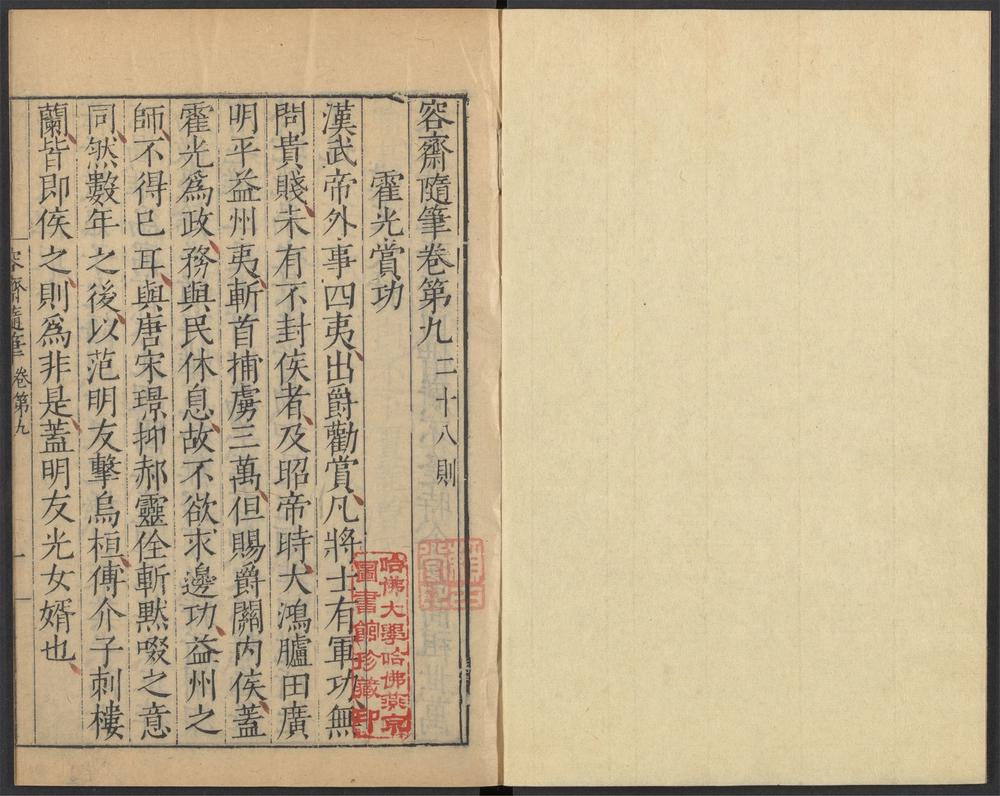 容齋隨筆卷第九 二十八則
霍光賞功
漢武帝外事四夷出爵勸賞凡將士有軍功無
問貴賤未有不封侯者及昭帝時大鴻臚田廣
明平益州夷斬首捕虜三萬但賜爵關内侯蓋
霍光爲政務與民休息故不欲求邊功益州之
師不得已耳與唐宋璟抑郝靈佺斬黙啜之意
同然數年之後以范明友擊烏桓傅介子刺樓
蘭皆即侯之則爲非是蓋明友光女婿也
容齋隨筆 卷第九 一
哈佛大學哈佛燕京
圖書館珍藏印